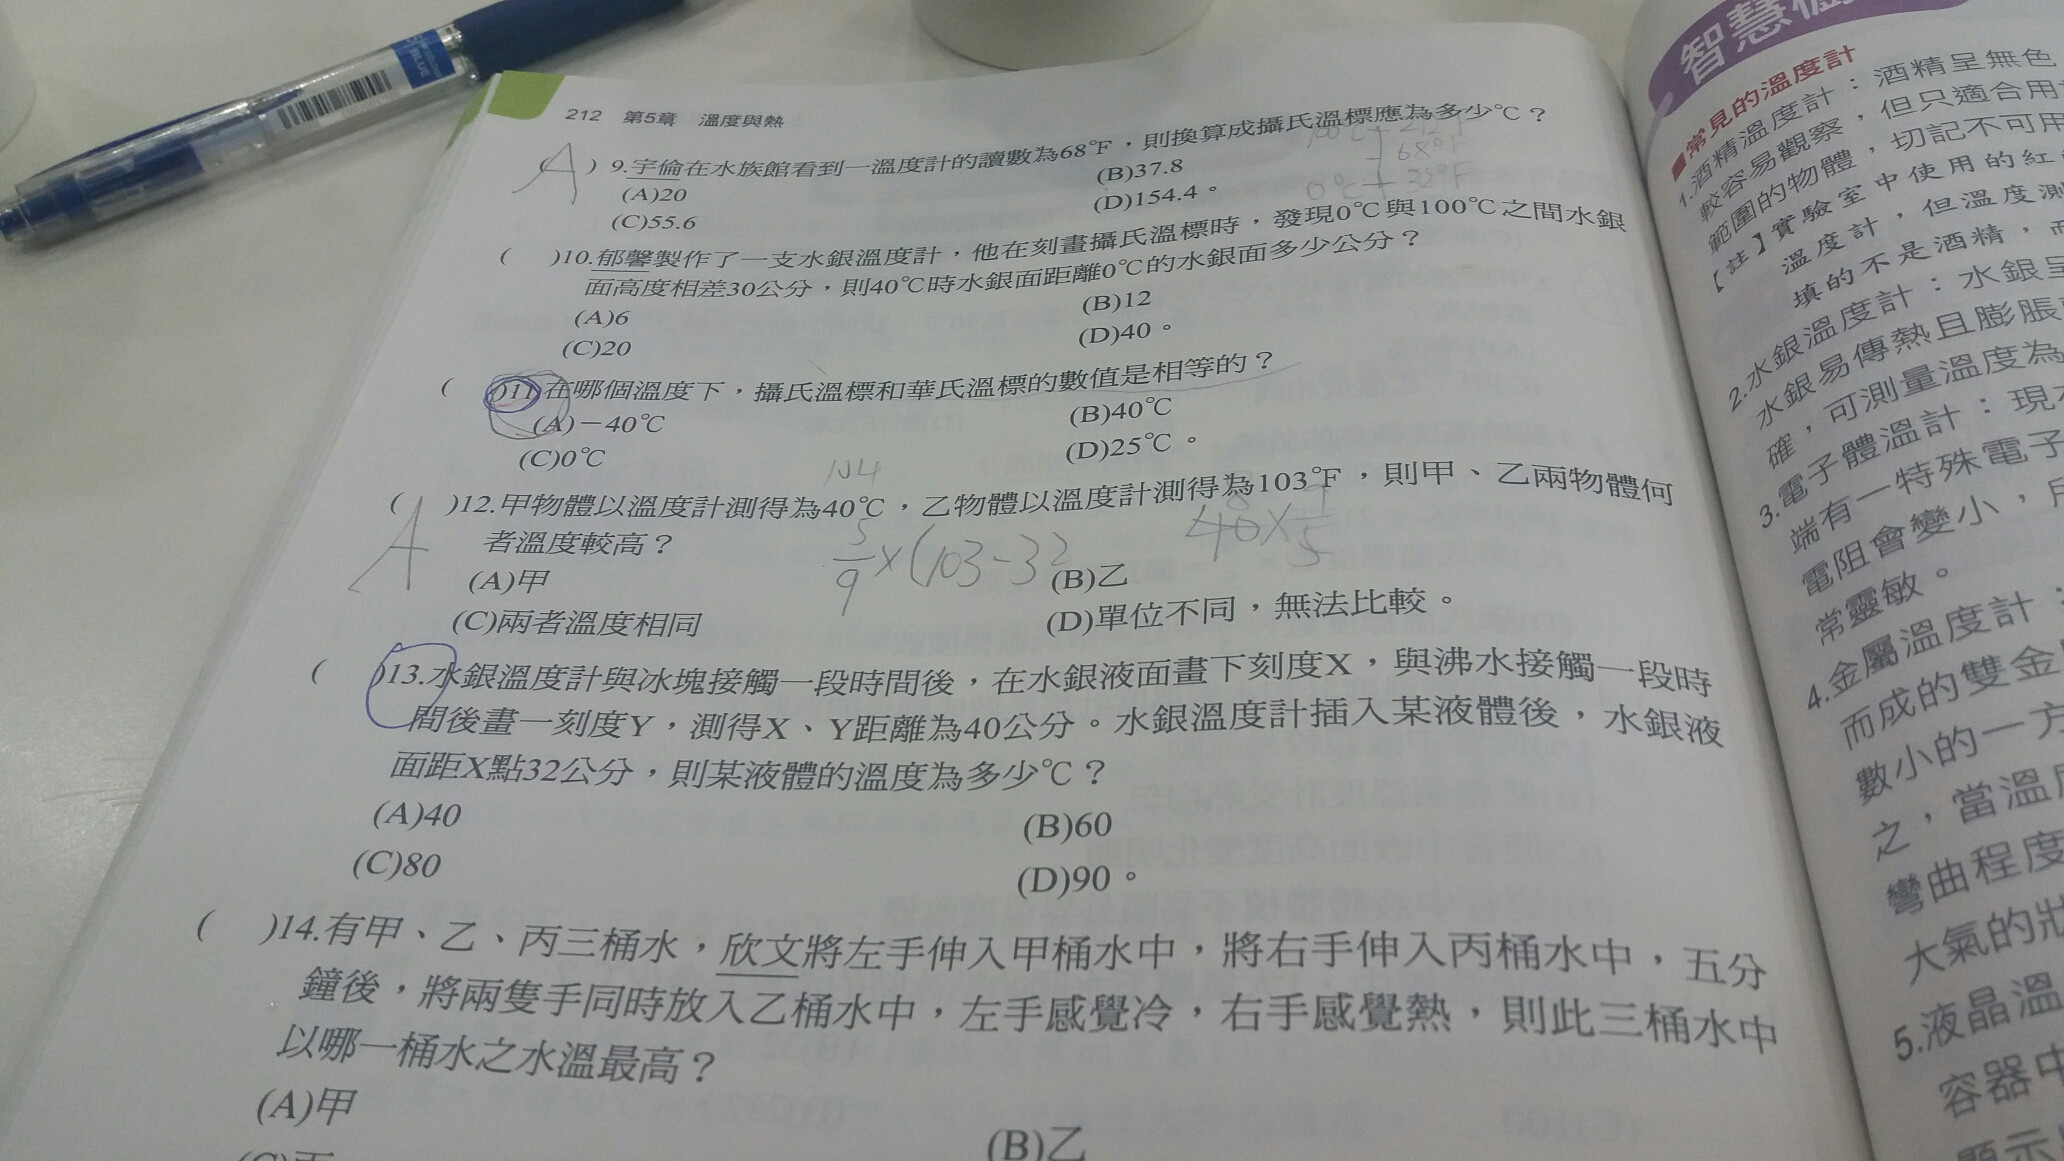 BLUE
212 第5章 溫度與熱
(A) 9.宇倫在水族館看到一溫度計的讀數為68°F,則換算成攝氏溫標應為多少℃?
100℃ 212°F
68°F
0℃ 32°F
(A)20 (B)37.8
(C)55.6 (D)154.4。
( )10.郁馨製作了一支水銀溫度計,他在刻畫攝氏溫標時,發現0℃與100℃之間水銀
面高度相差30公分,則40℃時水銀面距離0℃的水銀面多少公分?
(A)6 (B)12
(C)20 (D)40。
( )11.在哪個溫度下,攝氏溫標和華氏溫標的數值是相等的?
(A)-40℃ (B)40℃
(C)0℃ (D)25℃。
104
(A)12.甲物體以溫度計測得為40℃,乙物體以溫度計測得為103°F,則甲、乙兩物體何
者溫度較高?
5/9×(103-32
8
40×9/5
(A)甲 (B)乙
(C)兩者溫度相同 (D)單位不同,無法比較。
( )13.水銀溫度計與冰塊接觸一段時間後,在水銀液面畫下刻度X,與沸水接觸一段時
間後畫一刻度Y,測得X、Y距離為40公分。水銀溫度計插入某液體後,水銀液
面距X點32公分,則某液體的溫度為多少℃?
(A)40 (B)60
(C)80 (D)90。
( )14.有甲、乙、丙三桶水,欣文將左手伸入甲桶水中,將右手伸入丙桶水中,五分
鐘後,將兩隻手同時放入乙桶水中,左手感覺冷,右手感覺熱,則此三桶水中
以哪一桶水之水溫最高?
(A)甲 (B)乙
(C)丙
智慧
■常見的溫度計
1.酒精溫度計:酒精呈無色
較容易觀察,但只適合用
範圍的物體,切記不可用
【註】實驗室中使用的紅
溫度計,但溫度測
填的不是酒精,而
2.水銀溫度計:水銀呈
水銀易傳熱且膨脹
確,可測量溫度為
3.電子體溫計:現
端有一特殊電子
電阻會變小,
常靈敏。
4.金屬溫度計:
而成的雙金
數小的一方
之,當溫度
彎曲程度
大氣的狀
5.液晶溫
容器中
顯示